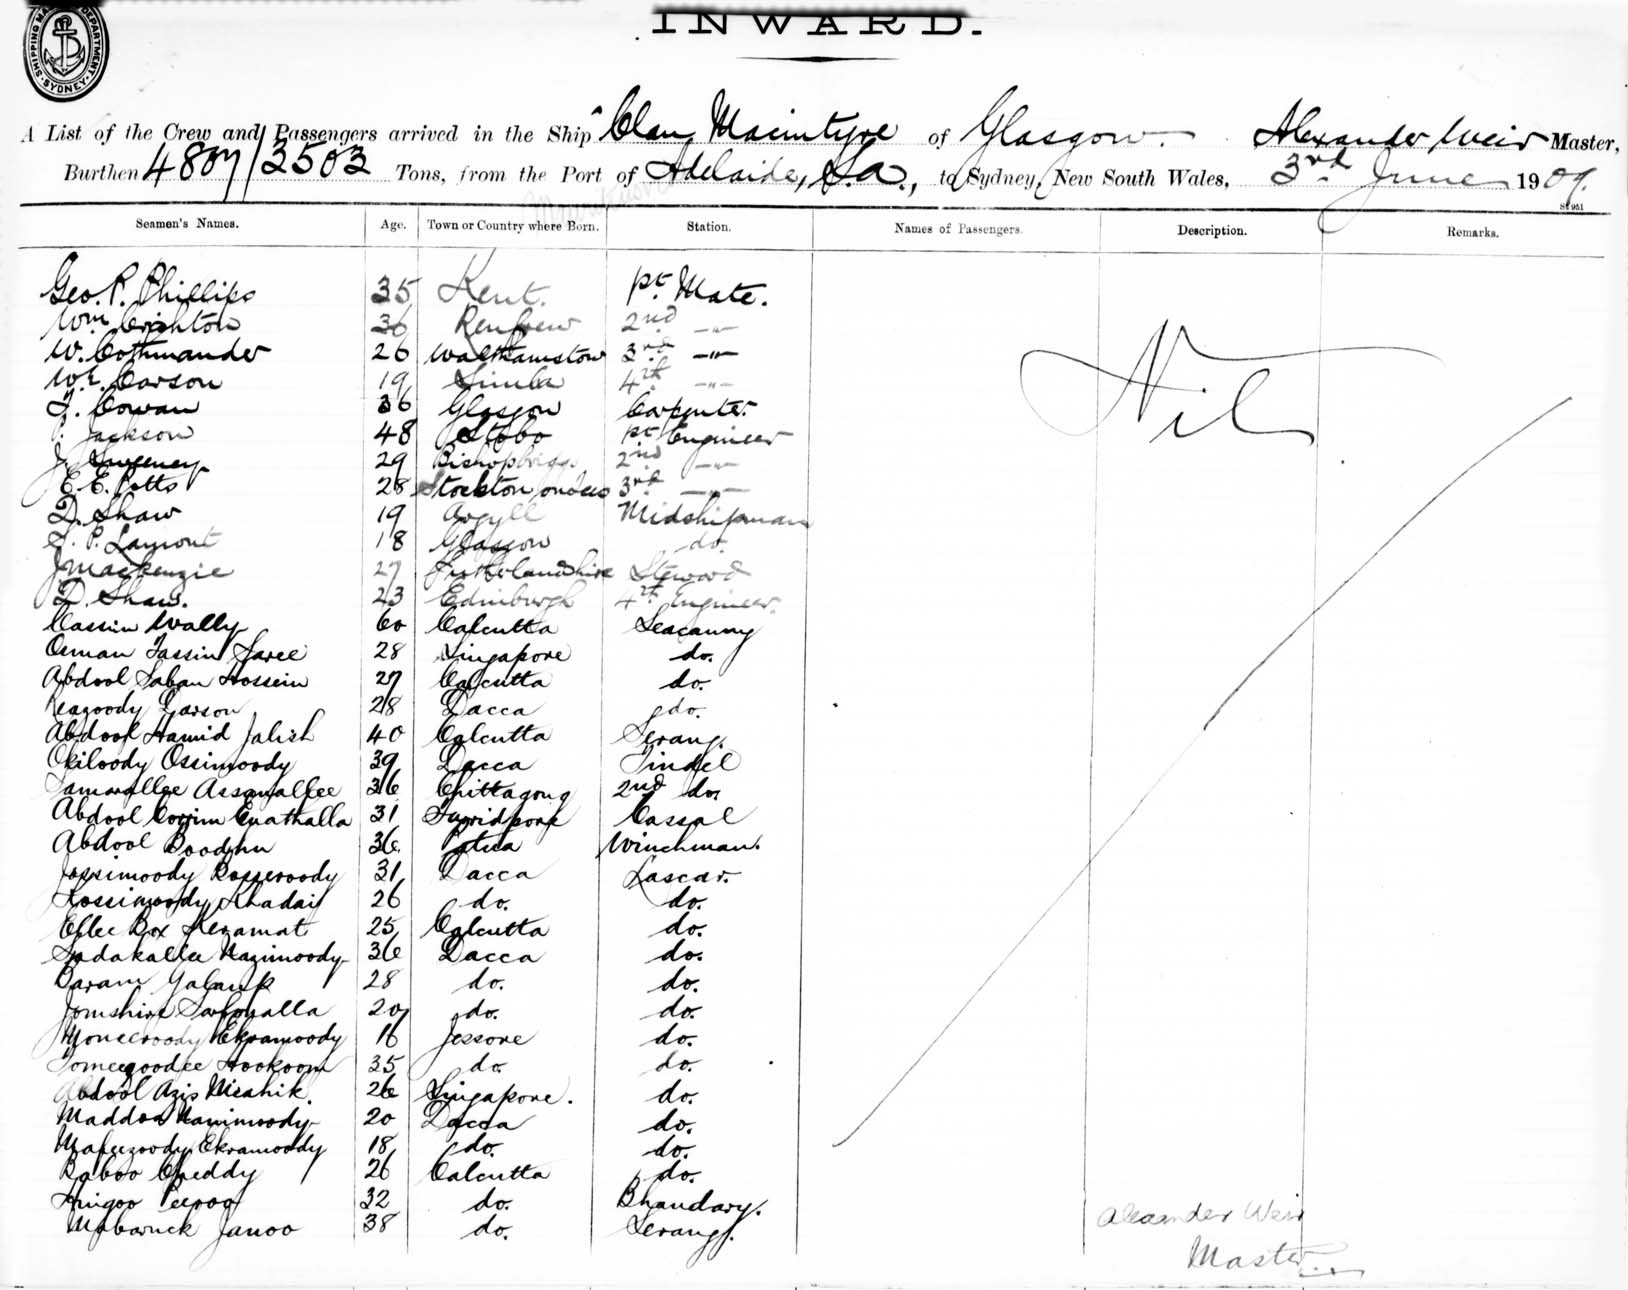 SHIPPING MASTER'S DEPARTMENT SYDNEY
INWARD.
A List of the Crew and Passengers arrived in the Ship Clan Macintyre of Glasgow. Alexander Weir Master,
Burthen 4807/2503 Tons, from the Port of Adelaide, S.A., to Sydney, New South Wales, 3rd June 1909.
Seamen's Names. Age. Town or Country where Born. Station. Names of Passengers. Description. Remarks.
Geo. P. Phillips 35 Kent. 1st Mate.
Wm Crichton 36 Renfrew 2nd -"-
W. Cothmander 26 Walthamstow 3rd -"-
Carson 19 Simla 4th -"-
Cowan 36 Glasgow Carpenter
Jackson 48 Stobo 1st Engineer
J. Sweeney 29 Bishopbriggs 2nd -"-
E. E. Potts 28 Stockton on Tees 3rd -"-
D. Shaw 19 Argyll Midshipman
P. Lamont 18 Glasgow do.
J Mackenzie 27 Steward
D. Shaw. 23 Edinburgh 4th Engineer.
Cassim Wally 60 Calcutta Seacunny
Osman Jassin Saree 28 Singapore do.
Abdool Saban Hossein 27 Calcutta do.
28 Dacca do.
Abdool Hamid Jalish 40 Calcutta Serang.
Okiloody Ossimoody 39 Dacca Tindel
Assamallee 36 Chittagong 2nd do.
Abdool Corrim Enathalla 31 Furridpore Cassal
Abdool Boodhu 36 Patna Winchman.
Jossimoody Bosseroody 31 Dacca Lascar.
Khadai 26 do. do.
Ellee Box Keramat 25 Calcutta do.
Sadakallee Nazimoody 36 Dacca do.
28 do. do.
20 do. do.
Ekramoody 18 Jessore do.
Hookoom 35 do. do.
Abdool Azis Misahik. 26 Singapore. do.
Maddon Nanimoody 20 Dacca do.
Mafeezoody Ekramoody 18 do. do.
Baboo 26 Calcutta do.
32 do. Bhandary.
Mobaruck Janoo 38 do. Serang.
Nil
Alexander Weir
Master